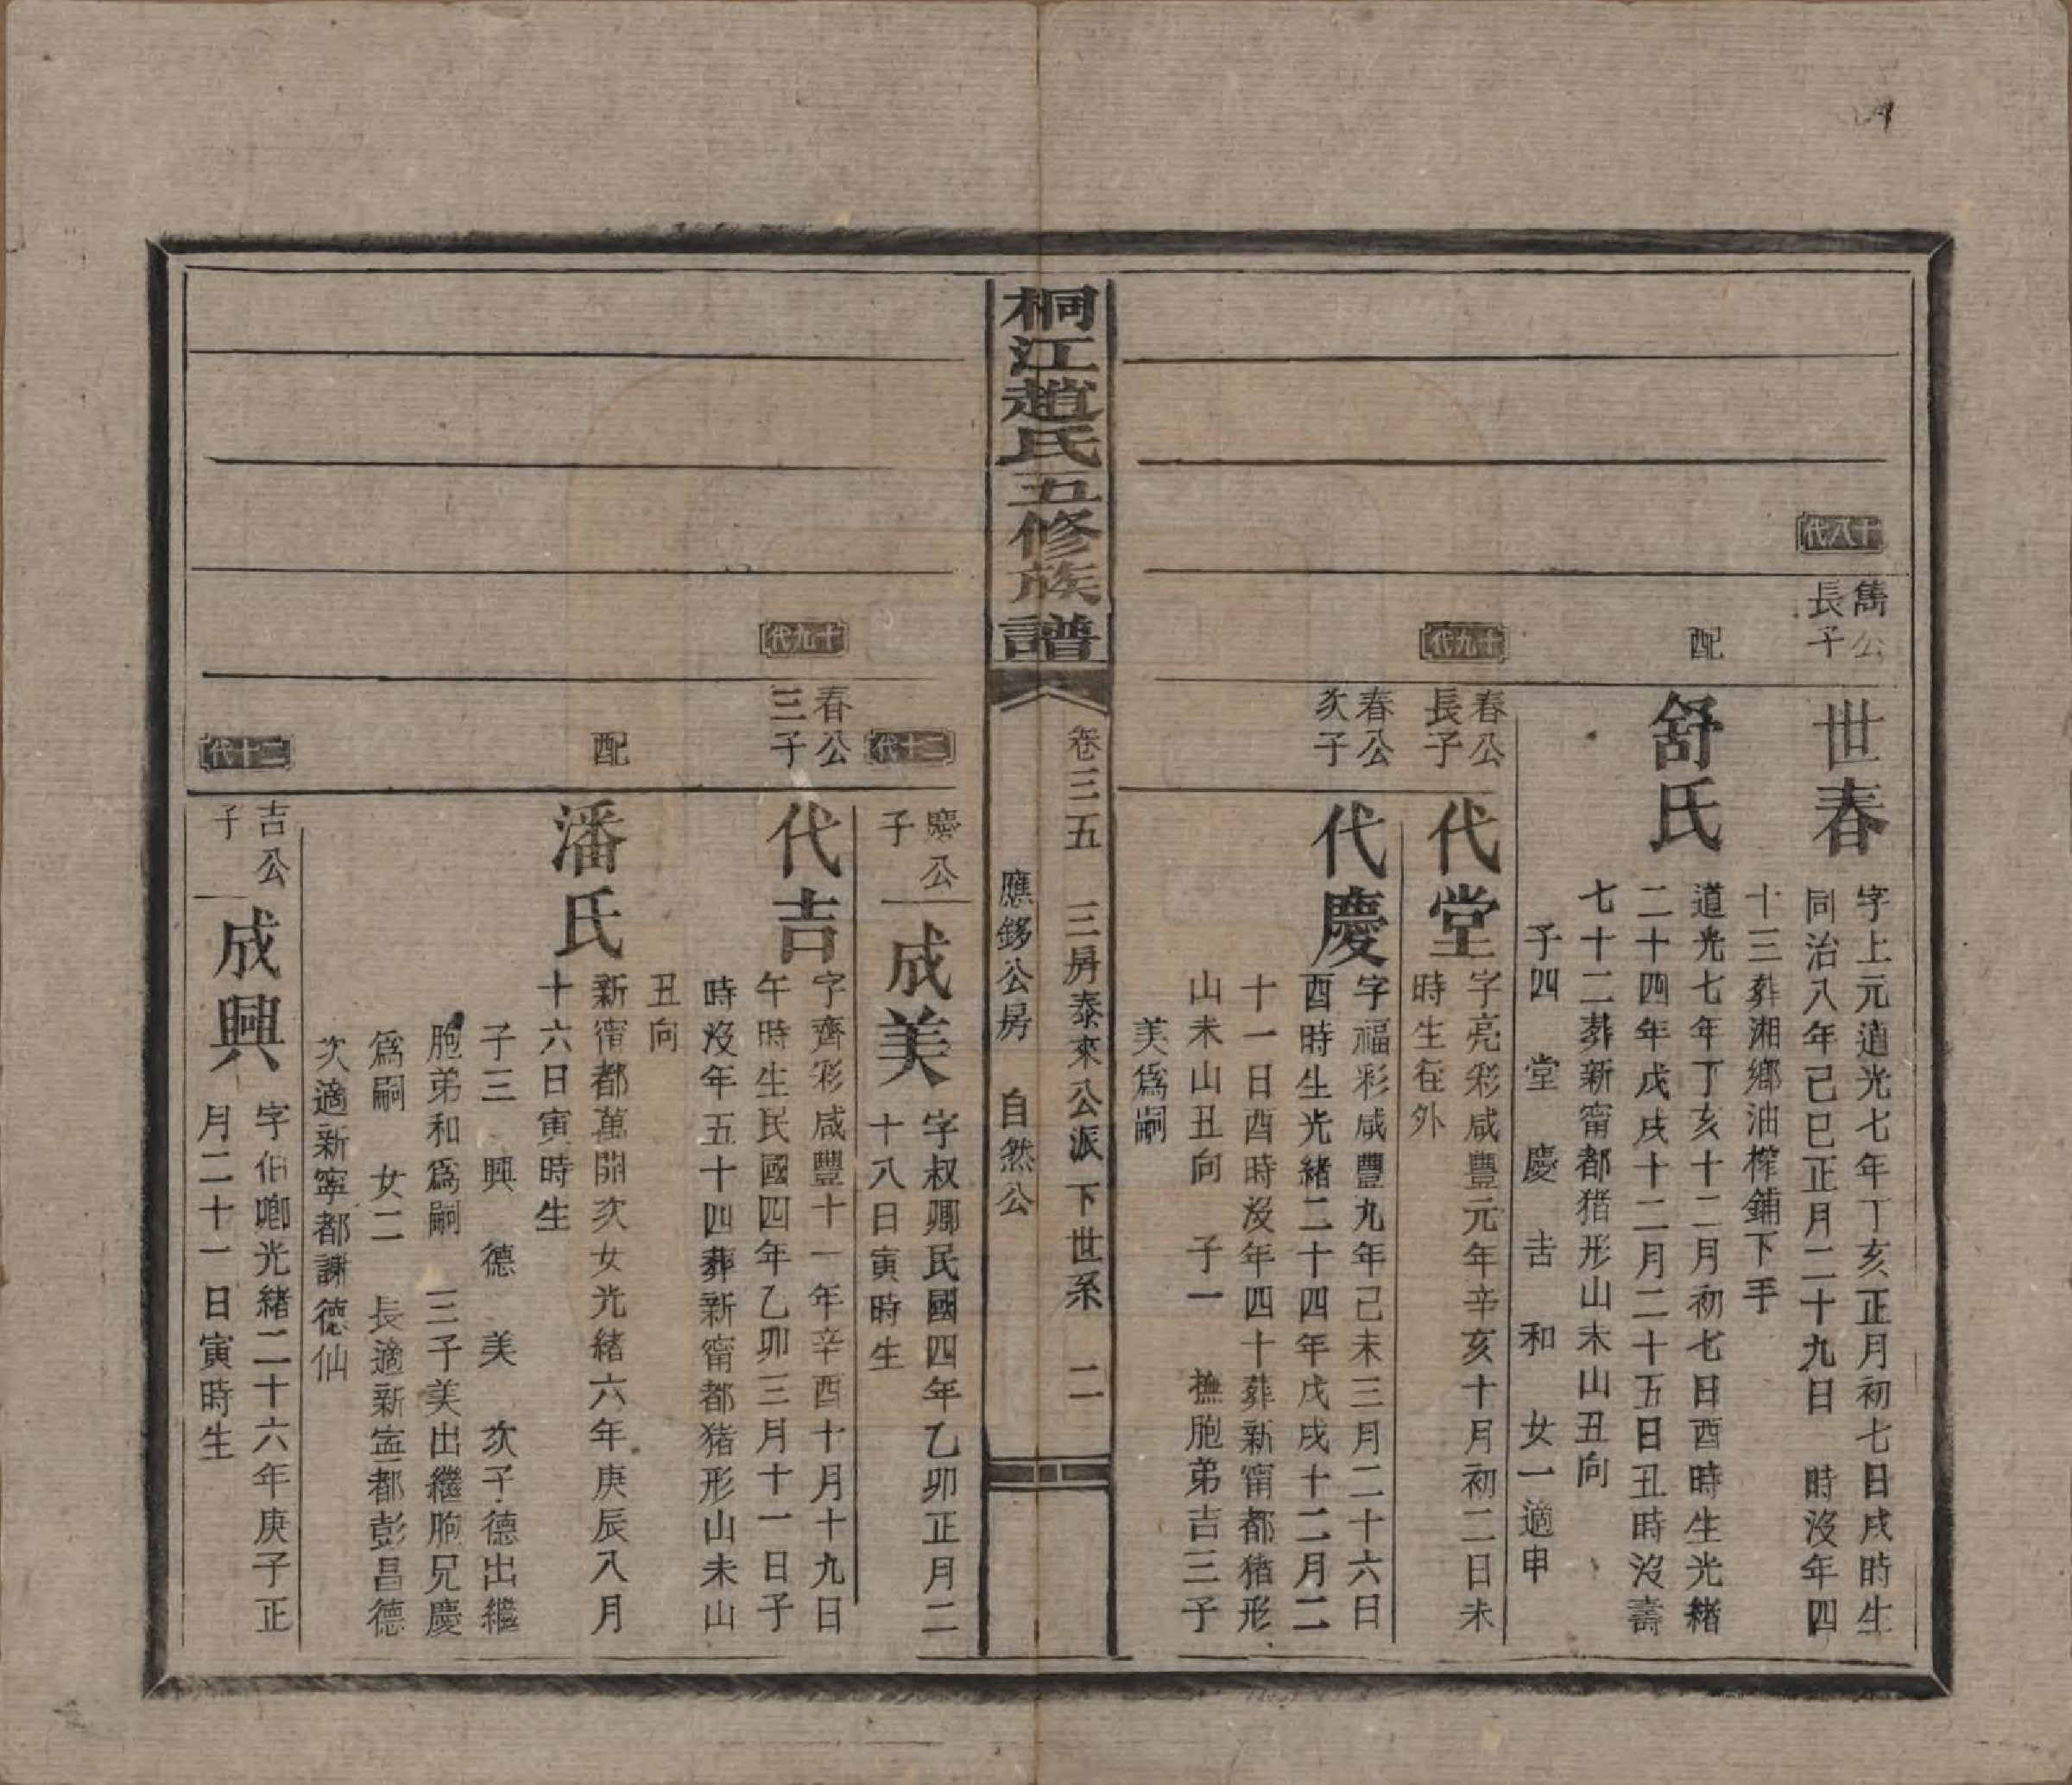 十八代
雋公
長子
世春
字上元道光七年丁亥正月初七日戌時生
同治八年己巳正月二十九日　時沒年四
十三葬湘鄉油榨鋪下手
配
舒氏
道光七年丁亥十二月初七日酉時生光緒
二十四年戊戌十二月二十五日丑時沒壽
七十二葬新甯都猪形山未山丑向
子四　堂　慶　吉　和　女一適申
十九代
春公
長子
代堂
字亮彩咸豐元年辛亥十月初二日未
時生在外
春公
次子
代慶
字福彩咸豐九年己未三月二十六日
酉時生光緒二十四年戊戌十二月二
十一日酉時沒年四十葬新甯都猪形
山未山丑向　子一　撫胞弟吉三子
美爲嗣
桐江趙氏五修族譜
卷三五　三房泰來公派下世系　二
應鉹公房　自然公
二十代
慶公
子
成美
字叔卿民國四年乙卯正月二
十八日寅時生
十九代
春公
三子
代吉
字齊彩咸豐十一年辛酉十月十九日
午時生民國四年乙卯三月十一日子
時沒年五十四葬新甯都猪形山未山
丑向
配
潘氏
新甯都萬開次女光緒六年庚辰八月
十六日寅時生
子三　興　德　美　次子德出繼
胞弟和爲嗣　三子美出繼胞兄慶
爲嗣　女二　長適新寍都彭昌德
次適新寧都謝德仙
二十代
吉公
子
成興
字伯卿光緒二十六年庚子正
月二十一日寅時生